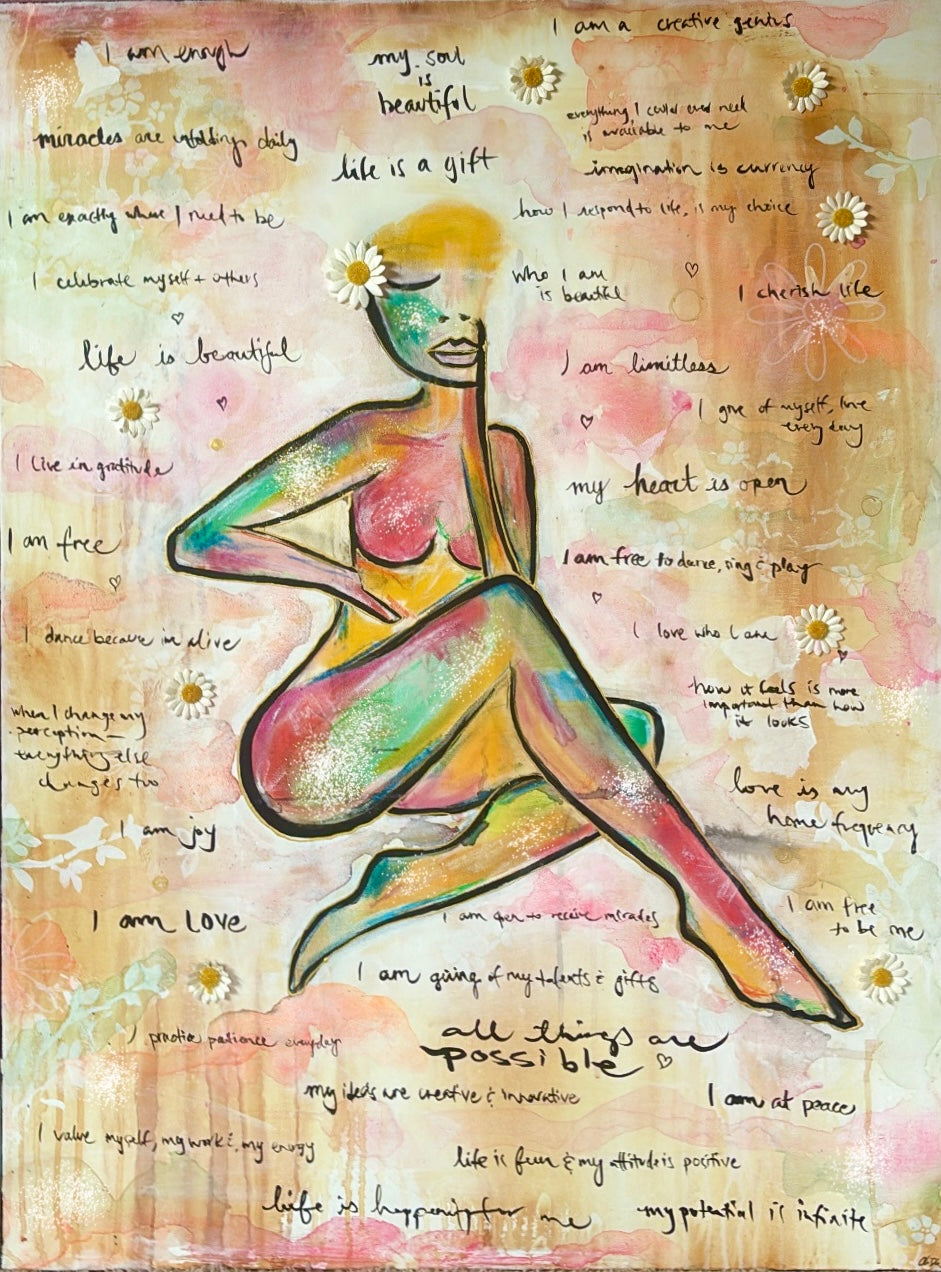 I am a creative genius
I am enough
my soul
is
beautiful
everything I could ever need
is available to me
miracles are unfolding daily
life is a gift
imagination is currency
I am exactly where I need to be
how I respond to life, is my choice
I celebrate myself + others
who I am
is beautiful
I cherish life
life is beautiful
I am limitless
I give of myself, love
every day
I live in gratitude
my heart is open
I am free
I am free to dance, sing & play
I dance because im alive
I love who I am
how it feels is more
important than how
it looks
when I change my
perception -
everything else
changes too
love is my
home frequency
I am joy
I am love
I am open to receive miracles
I am free
to be me
I am giving of my talents & gifts
I practice patience everyday
all things are
possible
my ideas are creative & innovative
I am at peace
I value myself, my work & my energy
life is fun & my attitude is positive
life is happening for me
my potential is infinite